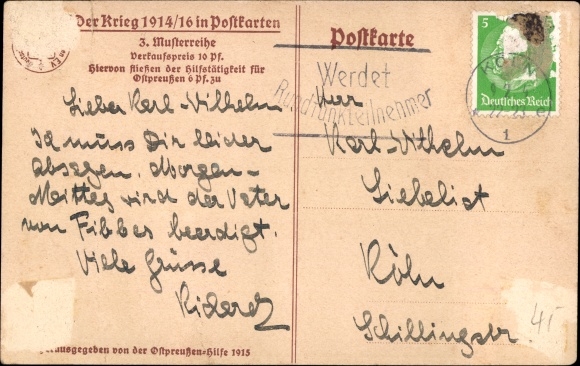 Der Krieg 1914/16 in Postkarten
3. Musterreihe
Verkaufspreis 10 Pf.
Hiervon fließen der Hilfstätigkeit für
Ostpreußen 6 Pf. zu
Lieber Karl-Wilhelm.
Ich muss Dir leider
absagen. Morgen-
Mittag wird der Vater
von Fibbes beerdigt.
Viele Grüsse
Richard
herausgegeben von der Ostpreußen-Hilfe 1915
Postkarte
Werdet
Rundfunkteilnehmer
5
Deutsches Reich
KÖLN
1
Herr
Karl-Wilhelm
Liebelist
Köln
Schillingstr.
41